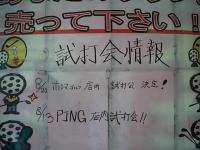 売って下さい!
試打会情報
8/22 ホンマゴルフ 店内 試打会 決定!
8/13 PING 店内試打会!!